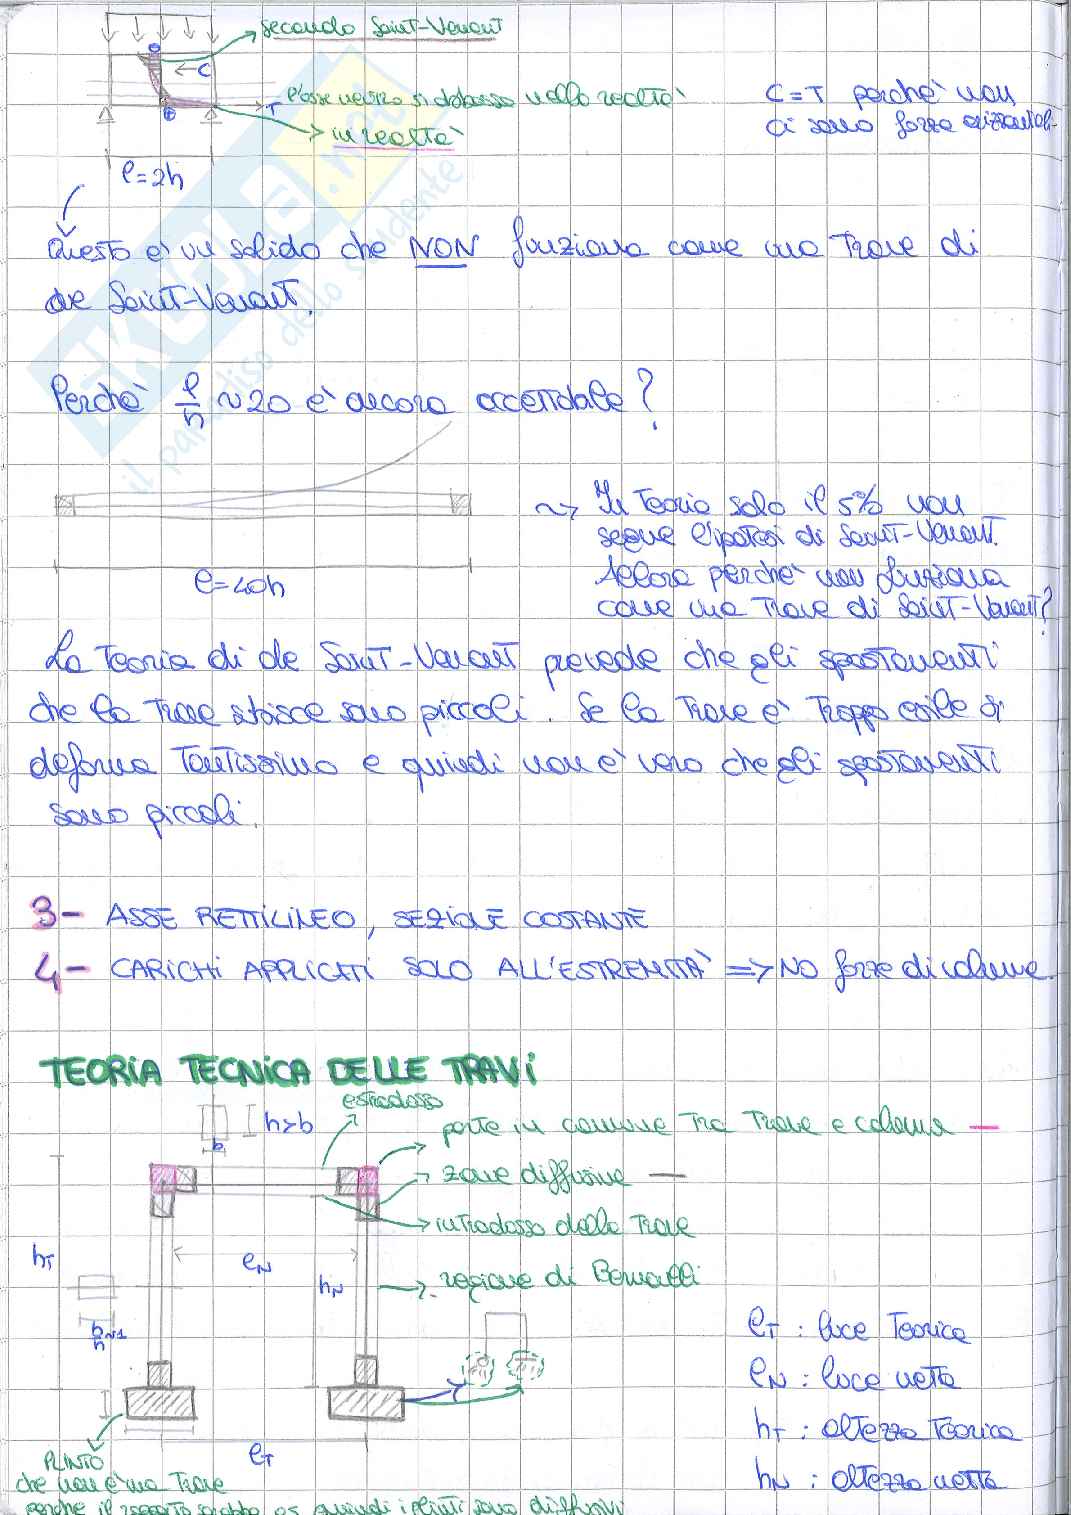 secondo Saint-Venant
C
T
l'asse neutro si abbassa nella realtà
in realtà
C=T perchè non
ci sono forze orizzontali
l=2h
Questo è un solido che NON funziona come una Trave di
de Saint-Venant.
Perchè l/h ~20 è ancora accettabile?
l=40h
~> In Teoria solo il 5% non
segue l'ipotesi di Saint-Venant.
Allora perchè non funziona
come una Trave di Saint-Venant?
La Teoria di de Saint-Venant prevede che gli spostamenti
che la Trave subisce sono piccoli. Se la Trave è Troppo esile si
deforma Tantissimo e quindi non è vero che gli spostamenti
sono piccoli.
3- ASSE RETTILINEO, SEZIONE COSTANTE
4- CARICHI APPLICATI SOLO ALL'ESTREMITÀ => NO forze di volume.
TEORIA TECNICA DELLE TRAVI
estradosso
h>b
b
parte in comune Tra Trave e colonna —
zone diffusive —
intradosso della Trave
hT
lN
hN
regione di Bernoulli
b/h ~1
lT : luce Teorica
lN : luce netta
hT : altezza Teorica
hN : altezza netta
lT
PLINTO
che non è una Trave
perchè il rapporto sarebbe 0,5 quindi i plinti sono diffusivi
SKUOLA.net
il paradiso dello studente